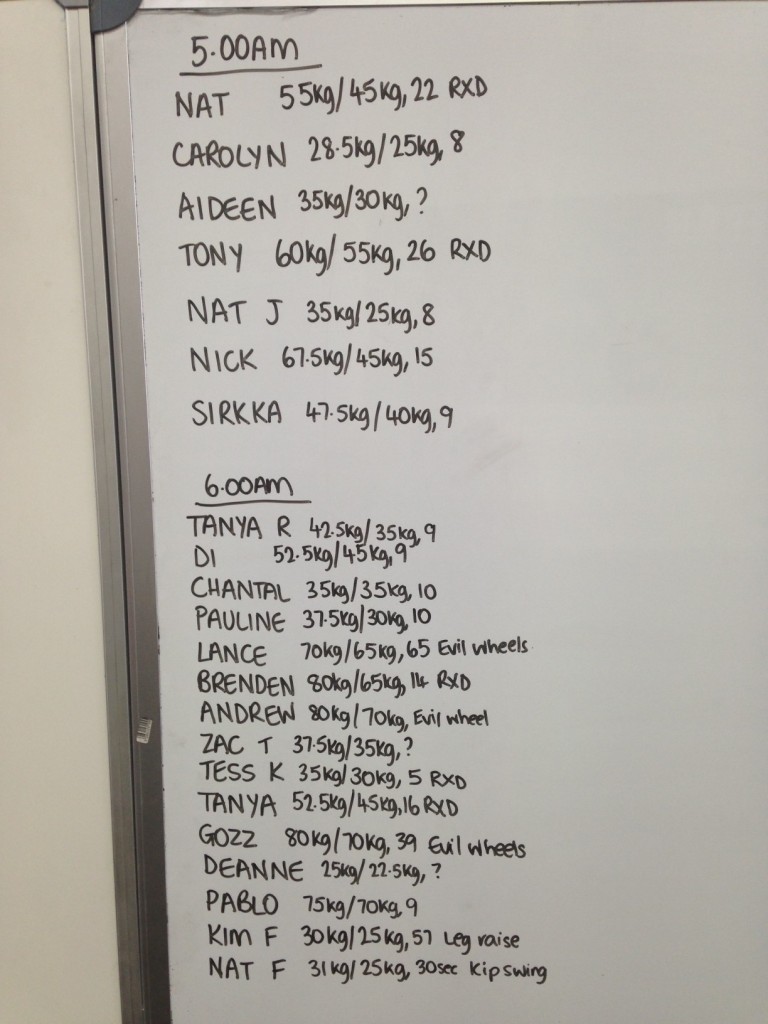 5.00AM
NAT 55kg/45kg, 22 RXD
CAROLYN 28.5kg/25kg, 8
AIDEEN 35kg/30kg, ?
TONY 60kg/55kg, 26 RXD
NAT J 35kg/25kg, 8
NICK 67.5kg/45kg, 15
SIRKKA 47.5kg/40kg, 9
6.00AM
TANYA R 42.5kg/35kg, 9
DI 52.5kg/45kg, 9
CHANTAL 35kg/35kg, 10
PAULINE 37.5kg/30kg, 10
LANCE 70kg/65kg, 65 Evil wheels
BRENDEN 80kg/65kg, 14 RXD
ANDREW 80kg/70kg, Evil wheel
ZAC T 37.5kg/35kg, ?
TESS K 35kg/30kg, 5 RXD
TANYA 52.5kg/45kg, 16 RXD
GOZZ 80kg/70kg, 39 Evil wheels
DEANNE 25kg/22.5kg, ?
PABLO 75kg/70kg, 9
KIM F 30kg/25kg, 57 Leg raise
NAT F 31kg/25kg, 30sec Kip swing